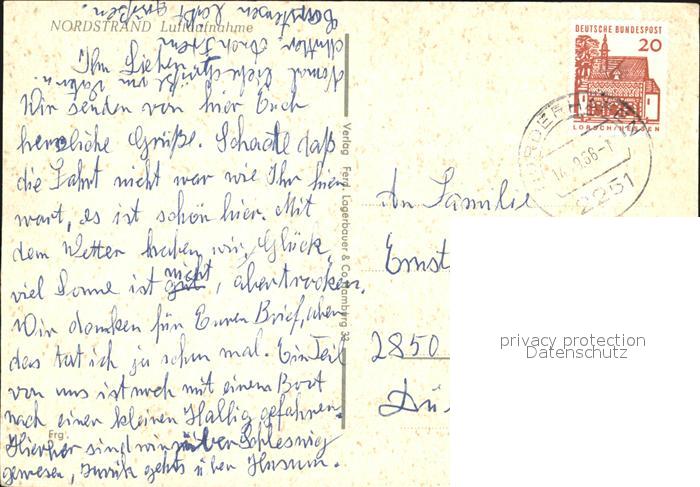 NORDSTRAND Luftaufnahme
Ihr Lieben
Wir senden von hier Euch
herzliche Grüße. Schade daß
die Fahrt nicht war wie Ihr hier
wart, es ist schön hier. Mit
dem Wetter haben wir Glück,
viel Sonne ist nicht, aber trocken.
Wir danken für Euren Brief, aber
das tat ich ja schon mal. Ein Teil
von uns ist noch mit einem Boot
nach einer kleinen Hallig gefahren.
Hierher sind wir über Schleswig
gewesen, zurück gehts über Husum.
Frg.
Verlag Ferd. Lagerbauer & Co. Hamburg 33
DEUTSCHE BUNDESPOST
20
LORSCH/HESSEN
2251
An Familie
Ernst
2850
privacy protection
Datenschutz